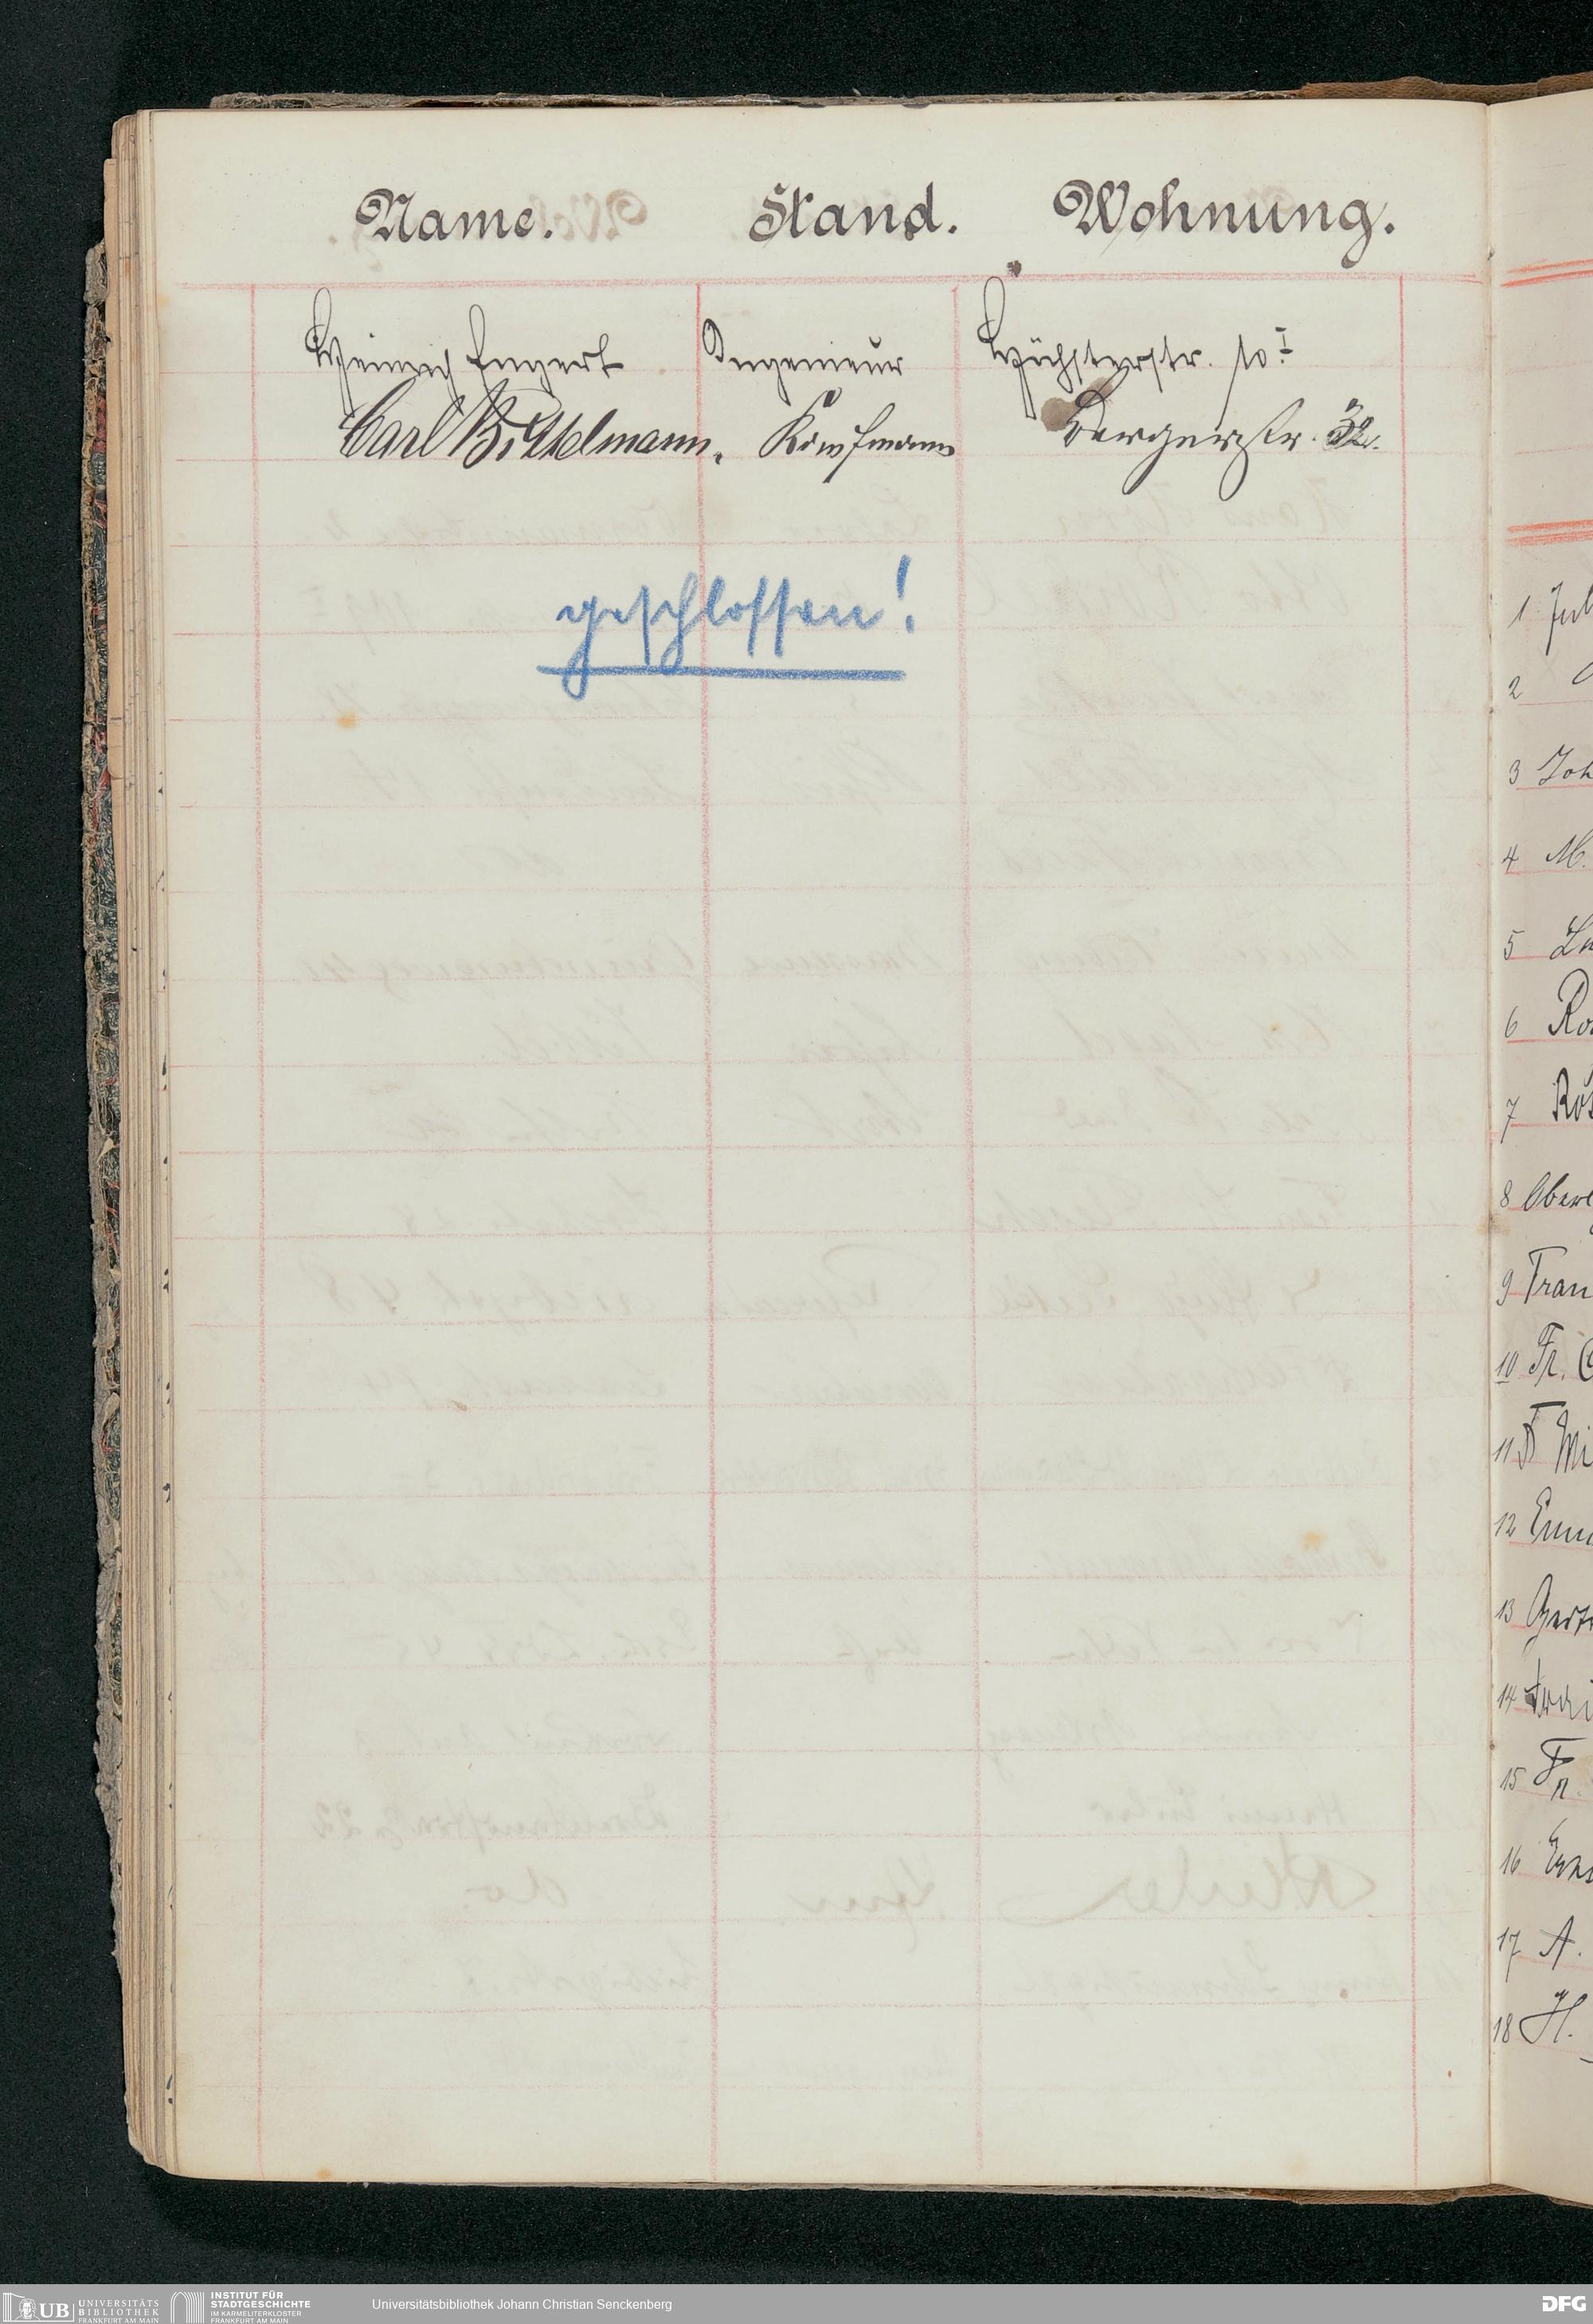 Name. Stand. Wohnung.
Heinrich Engert Ingenieur Höchsterstr. 10 I
Carl Bittelmann. Kaufmann Bergerstr. 32.
geschlossen!
1 Jul
2
3 Joh
4 M.
5
6 Ro
7 Ros
8 Ober
9 Fran
10 Fr.
11 Mi
12
13
14
15 Fr.
16
17 A.
18 H.
UB UNIVERSITÄTS
BIBLIOTHEK
FRANKFURT AM MAIN
INSTITUT FÜR
STADTGESCHICHTE
IM KARMELITERKLOSTER
FRANKFURT AM MAIN
Universitätsbibliothek Johann Christian Senckenberg
DFG